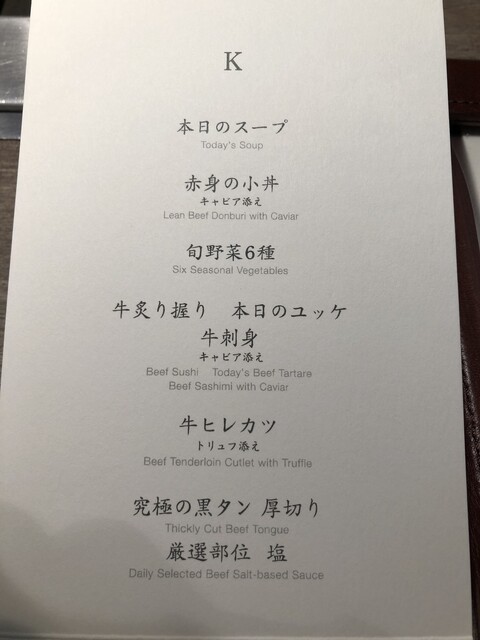 K
本日のスープ
Today's Soup
赤身の小丼
キャビア添え
Lean Beef Donburi with Caviar
旬野菜6種
Six Seasonal Vegetables
牛炙り握り　本日のユッケ
牛刺身
キャビア添え
Beef Sushi　Today's Beef Tartare
Beef Sashimi with Caviar
牛ヒレカツ
トリュフ添え
Beef Tenderloin Cutlet with Truffle
究極の黒タン 厚切り
Thickly Cut Beef Tongue
厳選部位　塩
Daily Selected Beef Salt-based Sauce